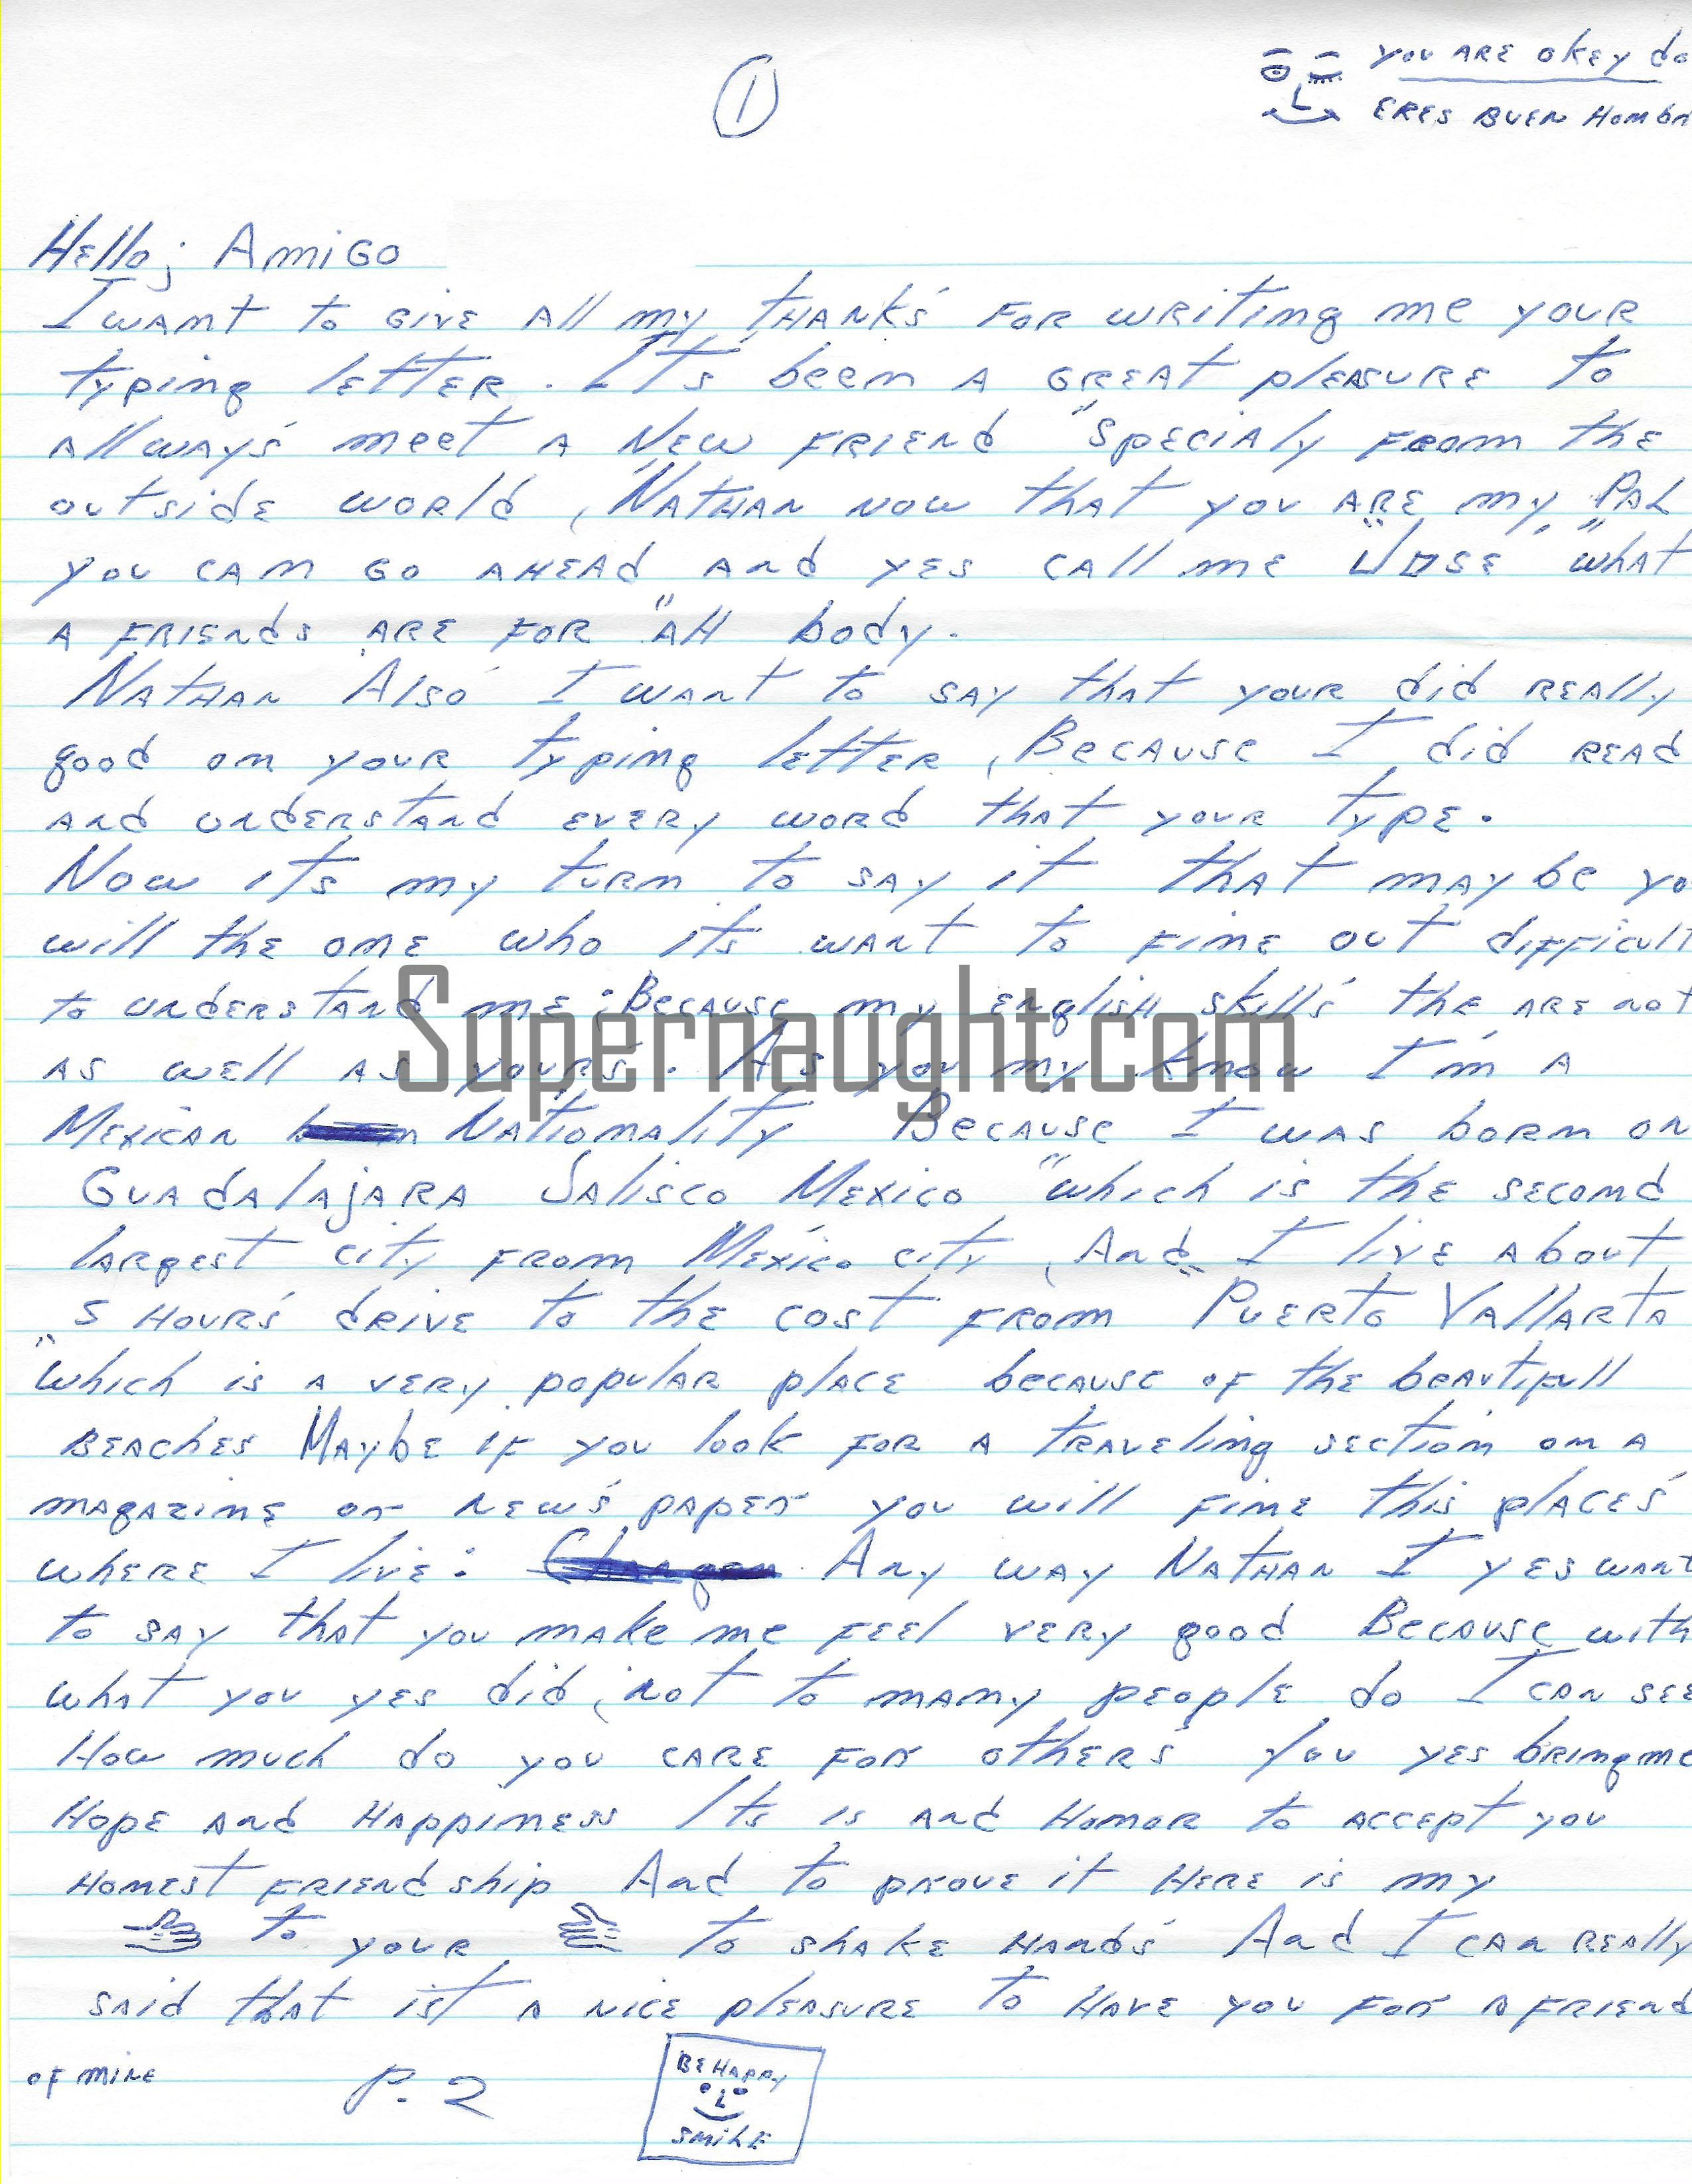 1
YOU ARE OKEY do
ERES BUEN HOMBR
Hello; AMIGO
I WANT to GIVE All my THANK'S FOR WRITING me YOUR
typing letter. IT's been A GREAT pleASURE to
Allway's meet A NEW FRIEND "Specialy FROM the
outside WORld, NATHAN NOW that you ARE my PAL
you CAN GO AHEAd ANd yes CAll me "JOSE" "what
A FRIENds ARE FOR "AH body.
NATHAN Also I WANT to SAY that your did REAlly
good on your typing letter, BECAUSE I did READ
ANd UNdERSTANd EVERY WORd that your type.
Now it's my turn to SAY it that MAY be yo
will the one who its WANT to FINE out difficult
to UNdERSTANd me; BECAUSE my english skill's the ARE not
AS well AS your's. As you my know I'm A
MEXICAN NATIONAlITY BECAUSE I WAS born on
GUAdAlAjARA JAlisco MEXICO "which is the second
lARgest city FROM MEXICO city, ANd I live About
"5 HOUR'S dRIVE to the cost FROM PUERTO VAllARTA
"which is A VERY populAR plACE because of the beautifull
BEACHES MAYbE IF you look FOR A TRAVEling section on A
MAGAZINE or NEW'S PAPER you will FINE this plACE'S
where I live: Any way NATHAN I yes WANT
to SAY that you MAKE me FEEl VERY good BECAUSE with
what you yes did, not to MANY people do I CAN SEE
How much do you CARE FOR others You yes bring me
Hope ANd HAppiness Its is ANd HONOR to ACCEPT you
HONEST FRIENdship ANd to prove it HERE is my
to your to SHAKE HANd's ANd I CAN REAlly
said that ist A NICE pleASURE to HAVE you FOR A FRIENd
OF MINE P. 2
BE HAPPY
SMILE
Supernaught.com